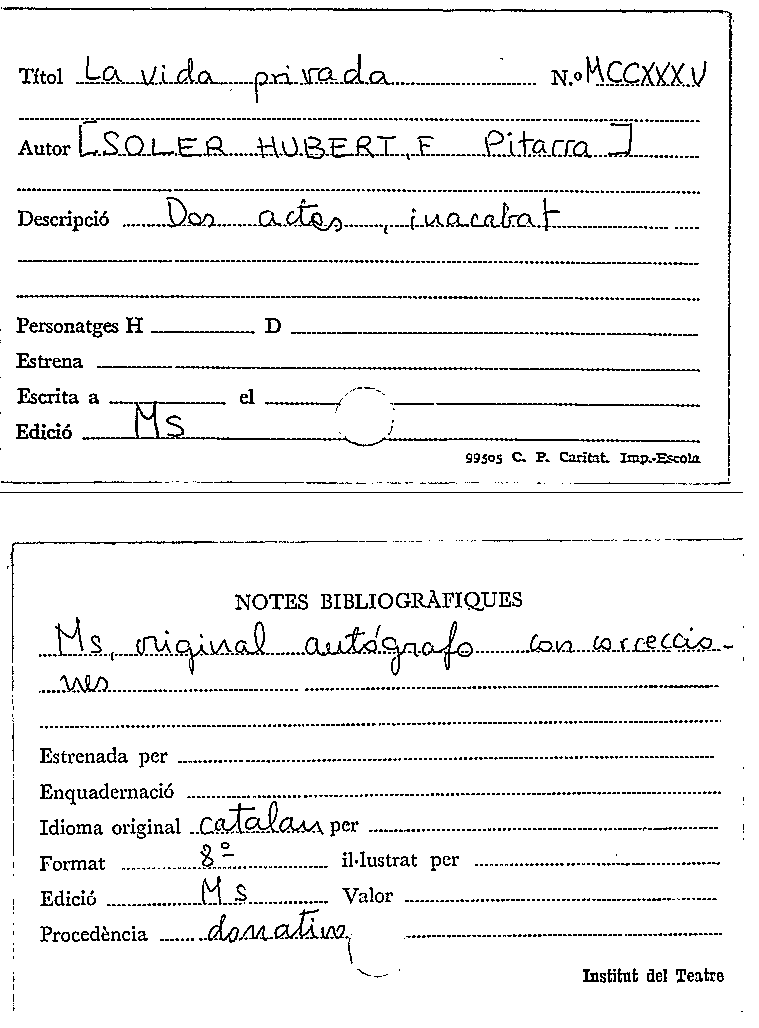 Títol La vida privada N.º MCCXXXV
Autor [SOLER HUBERT, F Pitarra]
Descripció Dos actes, inacabat
Personatges H D
Estrena
Escrita a el
Edició Ms
99505 C. P. Caritat. Imp.-Escola
NOTES BIBLIOGRÀFIQUES
Ms, original autógrafo con correccio-
nes
Estrenada per
Enquadernació
Idioma original catalan per
Format 8º il·lustrat per
Edició Ms Valor
Procedència donativo
Institut del Teatre